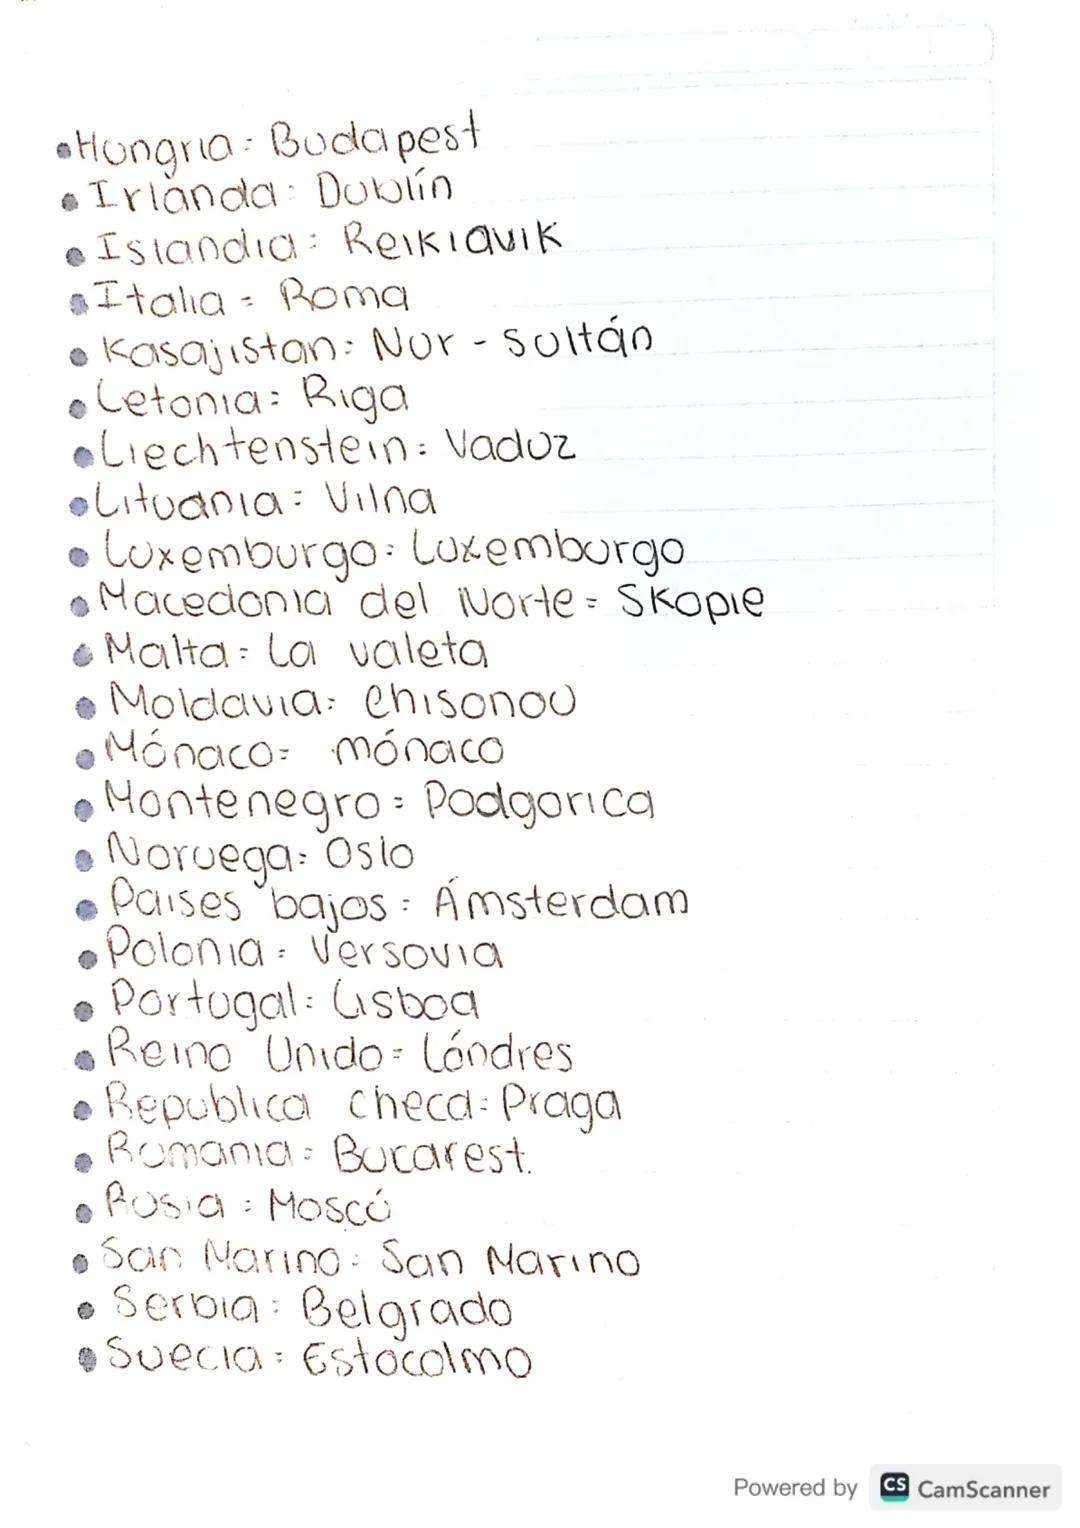 •Hungria: Budapest
• Irlanda: Dublín
• Islandia: Reikiavik
• Italia: Roma
• Kasajistan: Nur - Sultán
• Letonia: Riga
• Liechtenstein: Vaduz
• Lituania: Vilna
• Luxemburgo: Luxemburgo
• Macedonia del Norte: Skopie
• Malta: La valeta
• Moldavia: Chisonou
• Mónaco: mónaco
• Montenegro: Podgorica
• Noruega: Oslo
• Paises bajos: Ámsterdam
• Polonia: Versovia
• Portugal: Lisboa
• Reino Unido: Lóndres
• Republica checa: Praga
• Rumania: Bucarest.
• Rusia: Moscú
• San Marino: San Marino
• Serbia: Belgrado
• Suecia: Estocolmo
Powered by CS CamScanner